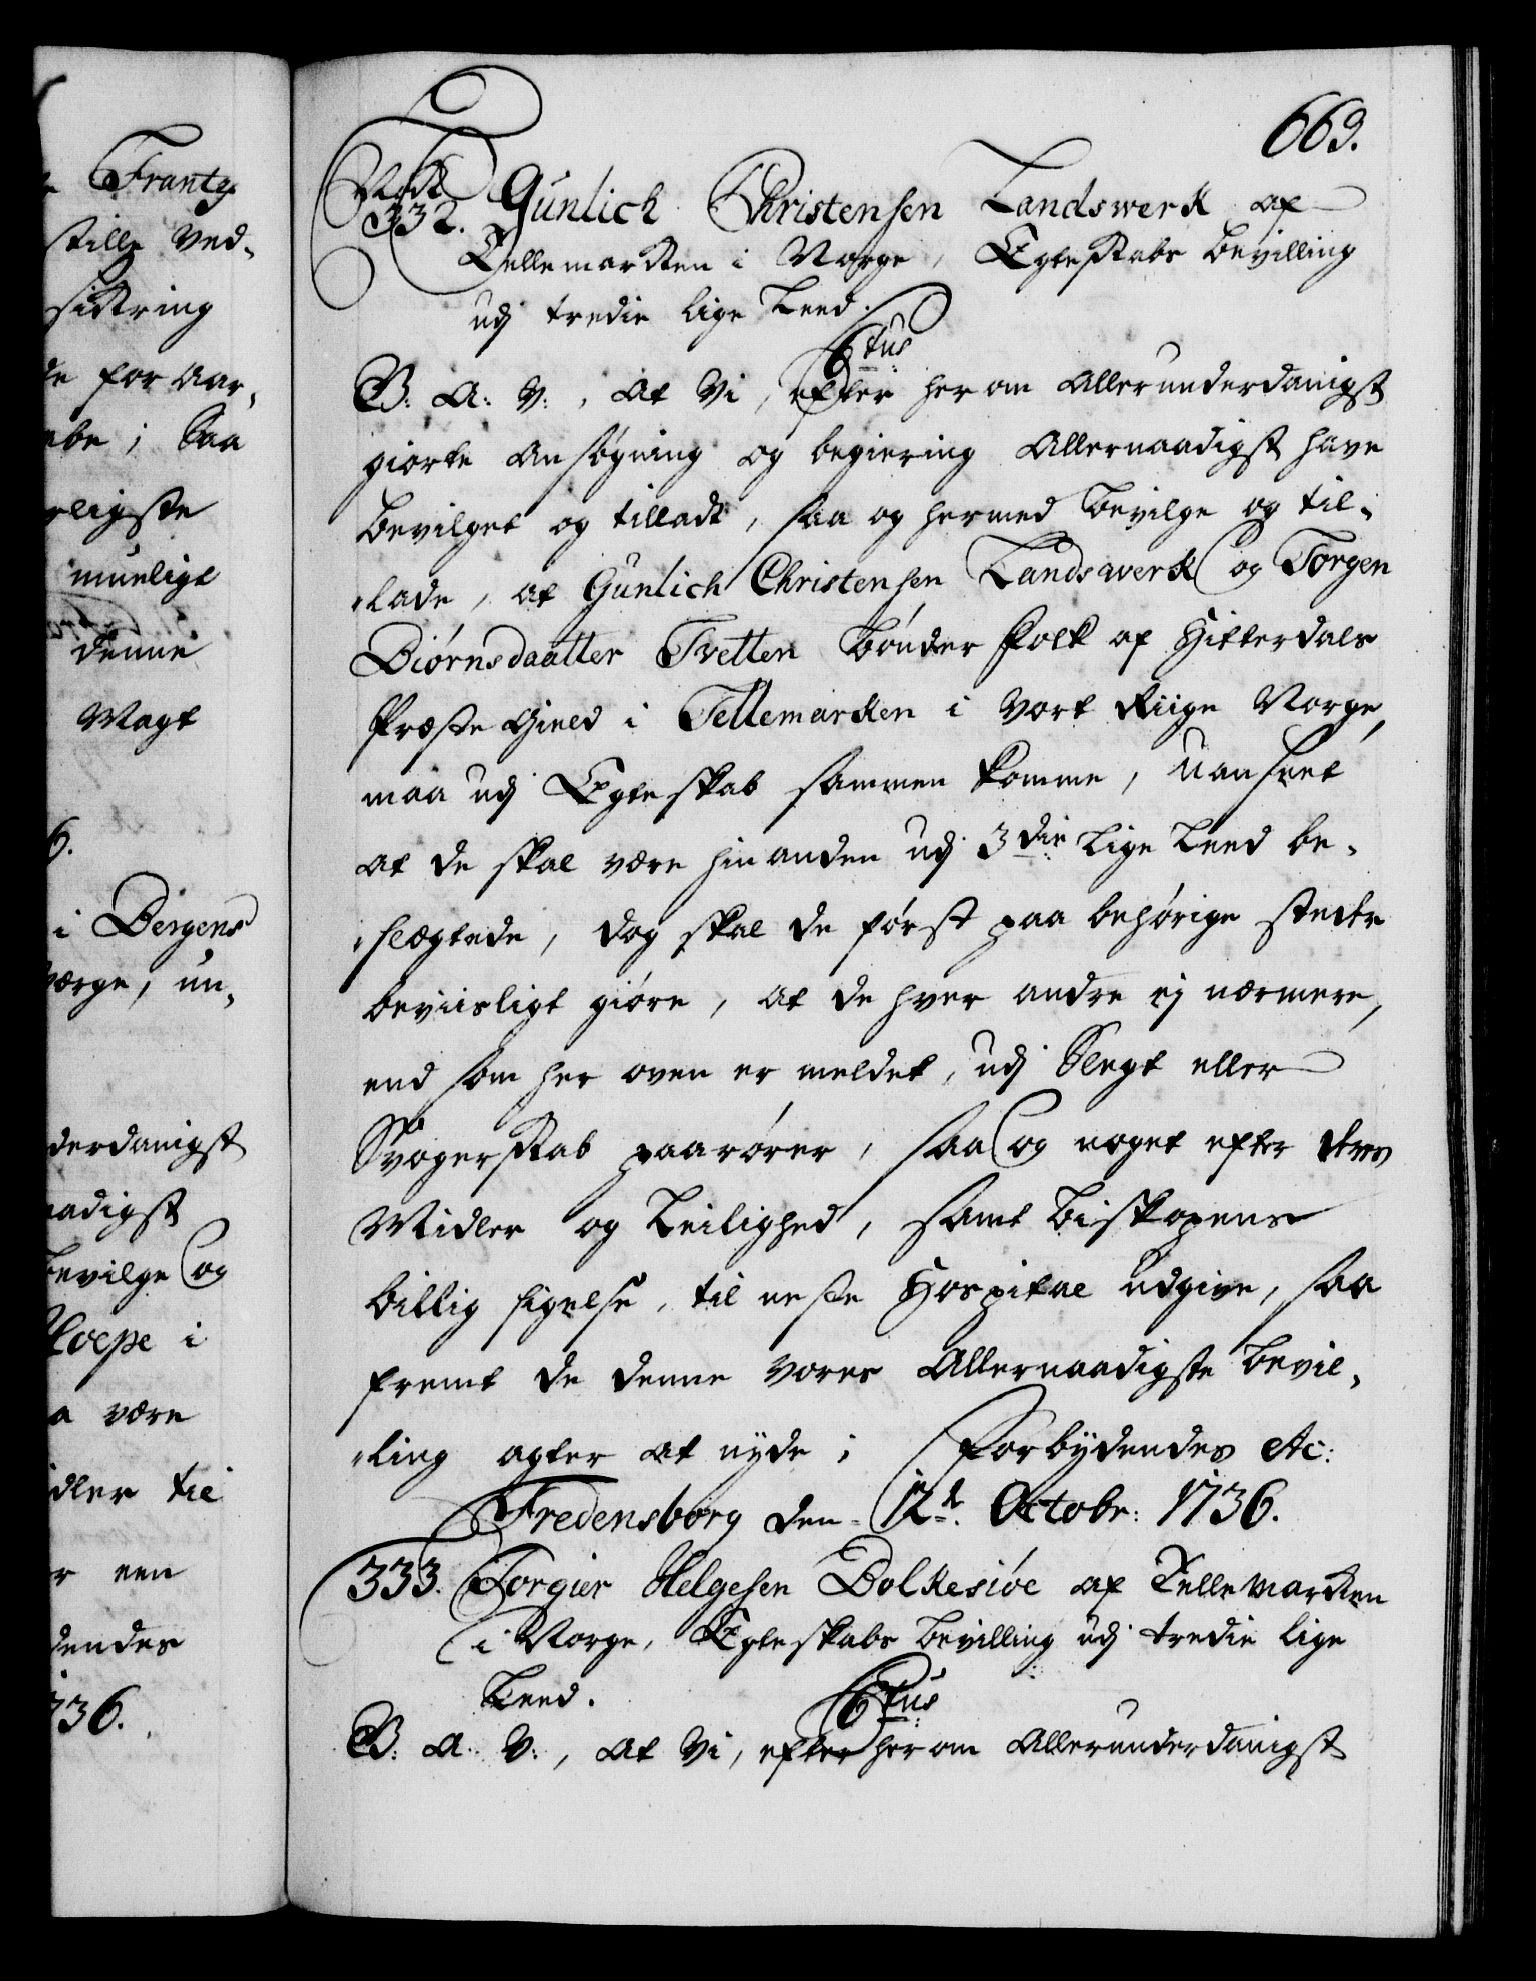 Frantz
stille ved-
sikring
for Aar,
; Saa
ligste
muelige
denne
Magt
6.
i Bergens
Norge, un,
derdanigst
aadigst
bevilge og
i
være
dler til
een
dendes
1736.
669.
332. Gunlich Christensen Landswerk af
Tellemarken i Norge, Egteskabs bevilling
udj tredie lige Leed.
Ctus
B: A: V:, At Vi, efter herom Allerunderdanigst
giorte Ansøgning og begiering Allernaadigst have
bevilget og tilladt, saa og hermed bevilge og til-
-lade, at Gunlich Christensen Landswerk og Torgen
Biørnsdaatter Tvetten bønder folk af Hitterdals
Præste Gield i Tellemarken i Vort Riige Norge,
maa udj Egteskab sammen komme, Uanseet
at de skal være hinanden udj 3die Lige Leed be-
-slegtede, dog skal de først paa behørige steder
beviisligt giøre, at de hver andre ej nærmere,
end som her oven er meldet, udj Slegt eller
Svogerskab paarører, saa og noget efter deres
Midler og Leilighed, samt biskopens
billig sigelse, til neste Hospital udgive, saa
fremt de denne vores Allernaadigste bevil-
-ling agter at nyde; Forbydendes etc:
Fredensborg den 12t. Octobr: 1736.
333. Torgier Helgesen Bolkesiøe af Tellemarken
i Norge, Egteskabs bevilling udj tredie lige
Leed.
Ctus
B: A: V:, At Vi, efter herom Allerunderdanigst